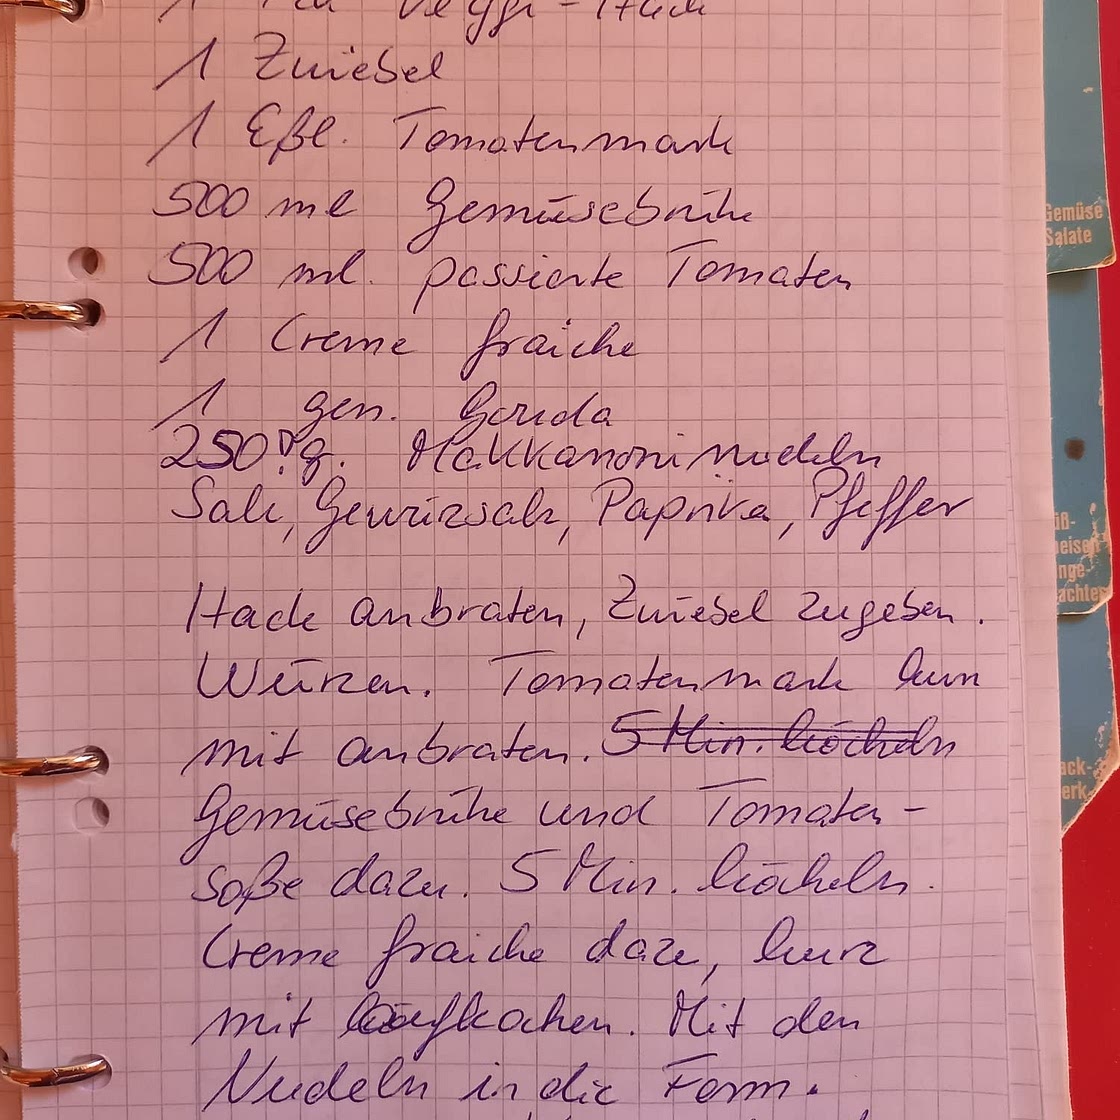 1 Veggi-Hack
1 Zwiebel
1 Eßl. Tomatenmark
500 ml Gemüsebrühe
500 ml. passierte Tomaten
1 Creme fraiche
1 ger. Gouda
250 g. Makkaroninudeln
Salz, Gewürzsalz, Paprika, Pfeffer
Hack anbraten, Zwiebel zugeben.
Würzen. Tomatenmark kurz
mit anbraten. 5 Min. köcheln
Gemüsebrühe und Tomaten-
soße dazu. 5 Min. köcheln.
Creme fraiche dazu, kurz
mit aufkochen. Mit den
Nudeln in die Form.
Gemüse
Salate